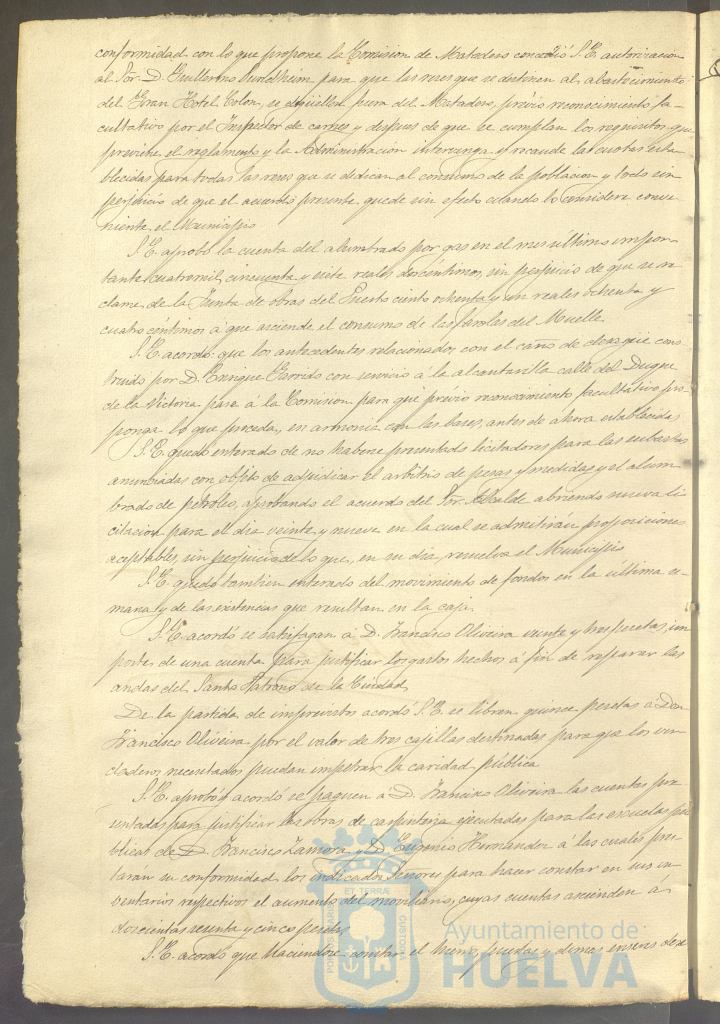 conformidad con lo que propone la Comision de Matadero concedió S.E. autorizacion
al Sor. D. Guillermo Sundheim para que las reses que se destinen al abastecimiento
del Gran Hotel Colon, se degüellen fuera del Matadero, previo reconocimiento fa-
cultativo por el Inspector de carnes y despues de que se cumplan los requisitos que
previene el reglamento y la Administracion intervenga y recaude las cuotas esta
blecidas para todas las reses que se dedican al consumo de la poblacion y todo sin
perjuicio de que el acuerdo presente quede sin efecto cuando lo considere conve-
niente el Municipio
S.E. aprobó la cuenta del alumbrado por gas en el mes último impor-
tante cuatromil cincuenta y siete reales dos céntimos, sin perjuicio de que se re
clame de la Junta de obras del Puerto ciento ochenta y un reales ochenta y
cuatro centimos a que asciende el consumo de las farolas del Muelle
S.E. acordó que los antecedentes relacionados con el caño de desague cons
truido por D. Enrique Garrido con servicio á la alcantarilla calle del Duque
de la Victoria pase á la Comision para que previo reconocimiento facultativo pro
ponga lo que proceda, en armonia con las bases, antes de ahora establecidas
S.E. quedó enterado de no haberse presentado licitadores para las subastas
anunciadas con objeto de adjudicar el arbitrio de pesas y medidas y el alum
brado de petroleo, aprobando el acuerdo del Sor. Alcalde abriendo nueva li
citacion para el dia veinte y nueve en la cual se admitirán proposiciones
aceptables, sin perjuicio de lo que, en su dia, resuelva el Municipio
S.E. quedó tambien enterado del movimiento de fondos en la última se-
mana y de las existencias que resultan en la caja.
S.E. acordó se satisfagan á D. Francisco Oliveira veinte y tres pesetas, im
porte de una cuenta para justificar los gastos hechos á fin de reparar las
andas del Santo Patrono de la Ciudad,
De la partida de imprevistos acordó S.E. se libren quince pesetas á Don
Francisco Oliveira por el valor de tres cajillas destinadas para que los ver
daderos necesitados puedan impetrar la caridad pública
S.E. aprobó y acordó se paguen a D. Francisco Oliveira las cuentas pre
sentadas para justificar las obras de carpinteria ejecutadas para las escuelas pú
blicas de D. Francisco Zamora y D. Eugenio Hernandez á las cuales pres
taran su conformidad los indicados Señores para hacer constar en sus in
ventarios respectivos el aumento del moviliario, cuyas cuentas ascienden á
doscientas sesenta y cinco pesetas
S.E. acordó que haciendose constar el hierro, puertas y demas enseres
Ayuntamiento de
HUELVA